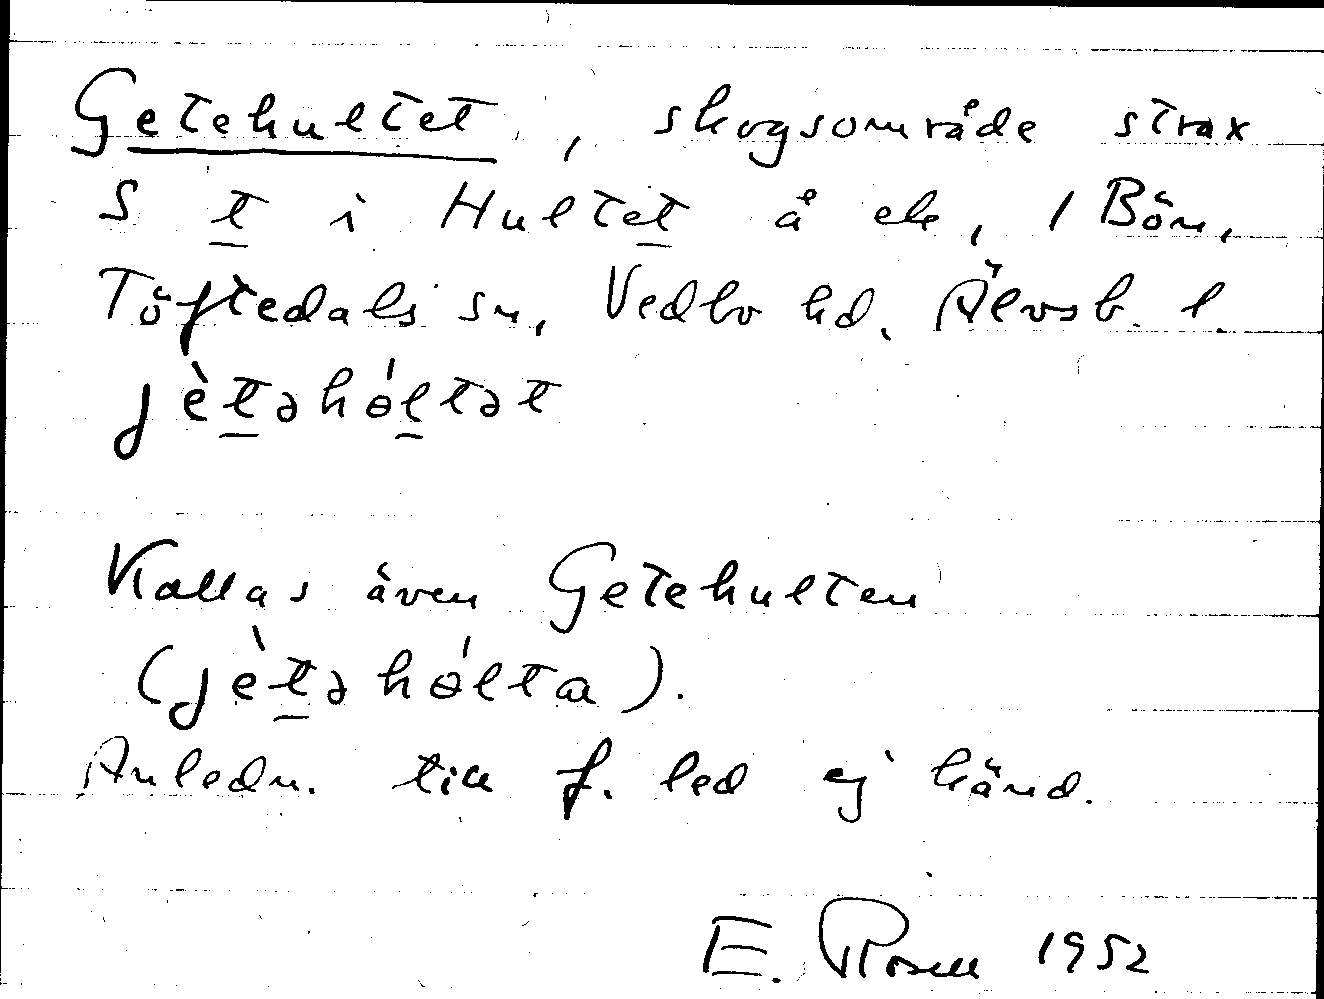 Getehultet, skogsområde strax
S t i Hultet å ek, 1 Bön,
Töftedals sn, Vedbo hd. Älvsb. l.
jètəhɵ́ltət
Kallas även Getehulten
(jètəhɵ́lta).
Anledn. till f. led ej känd.
E. Rosell 1952